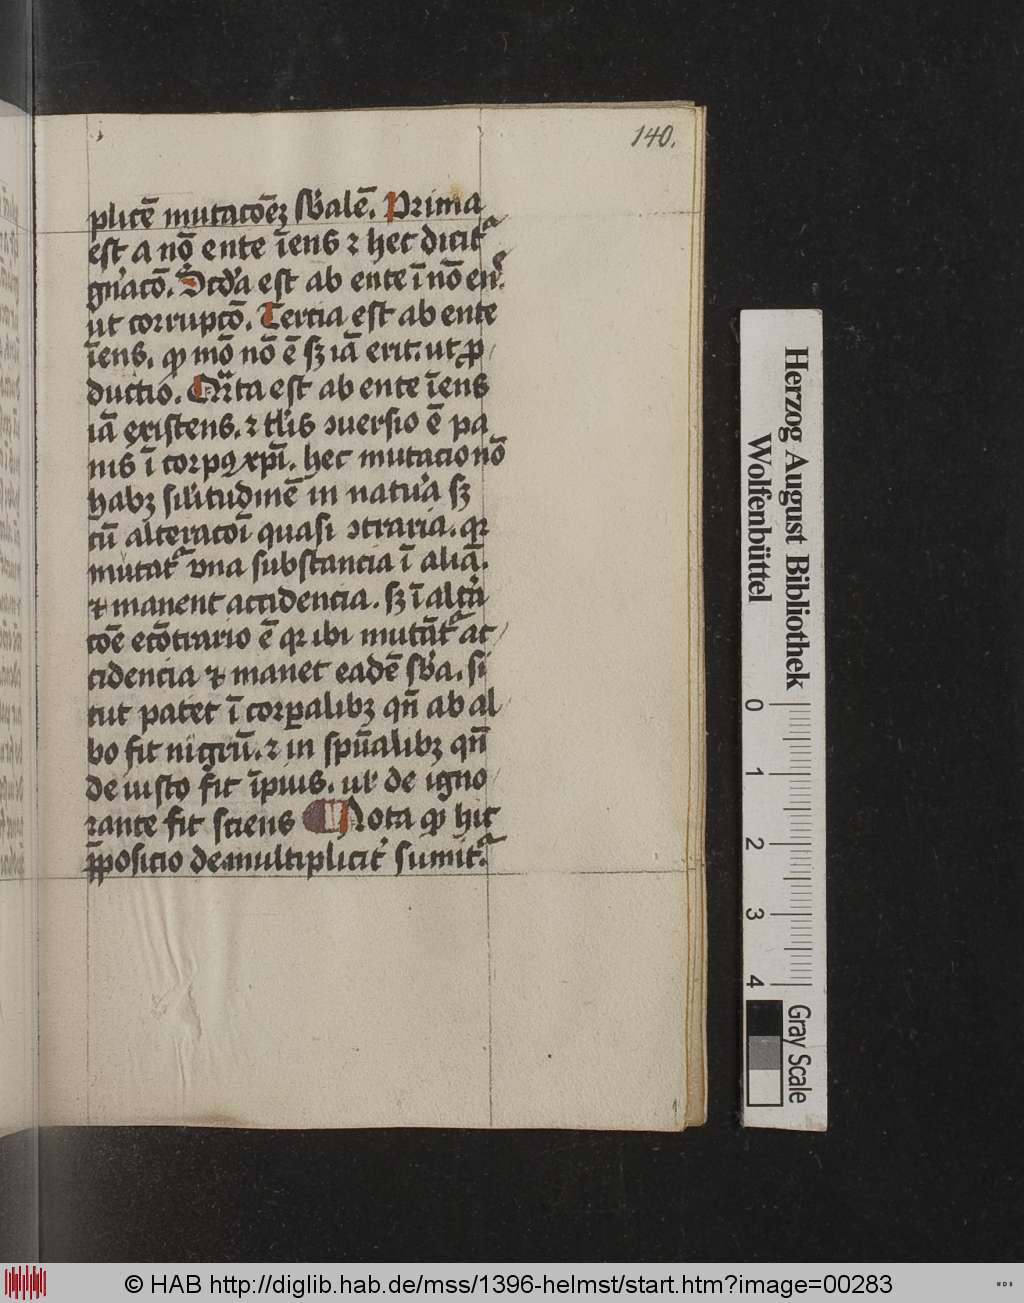 140.
plicē mutacōēꝫ sb̾alē. Prima
est a nō ente īens ⁊ hec dicitᷣ
gn̾acō. Scd̾a est ab ente ī nō enˢ.
ut corrupcō. Tercia est ab ente
īens. ꝙ mō nō ē sꝫ iā erit. ut ꝓ
ductio. Qᷓrta est ab ente īens
iā existens. ⁊ tl̾is ↄuersio ē pa
nis ī corpꝰ xp̄i. hec mutacio nō
habꝫ sil̾itudinē in natu̾a sꝫ
cū alteracōī quasi ↄtraria. qꝛ
mutatᷣ vna substancia ī aliā.
⁊ manent accidencia. sꝫ ī alt̾a
cōe ecōtrario ē qꝛ ibi mutātᷣ ac
cidencia ⁊ manet eadē sb̾a. si
cut patet ī corꝑalibꝫ qn̄ ab al
bo fit nigrū. ⁊ in spūalibꝫ qn̄
de iusto fit īpius. ul̾ de igno
rante fit sciens Nota ꝙ hic
p̄posicio de multiplicit̾ sumitᷣ.
Herzog August Bibliothek
Wolfenbüttel
0 1 2 3 4
Gray Scale
© HAB http://diglib.hab.de/mss/1396-helmst/start.htm?image=00283
WDB